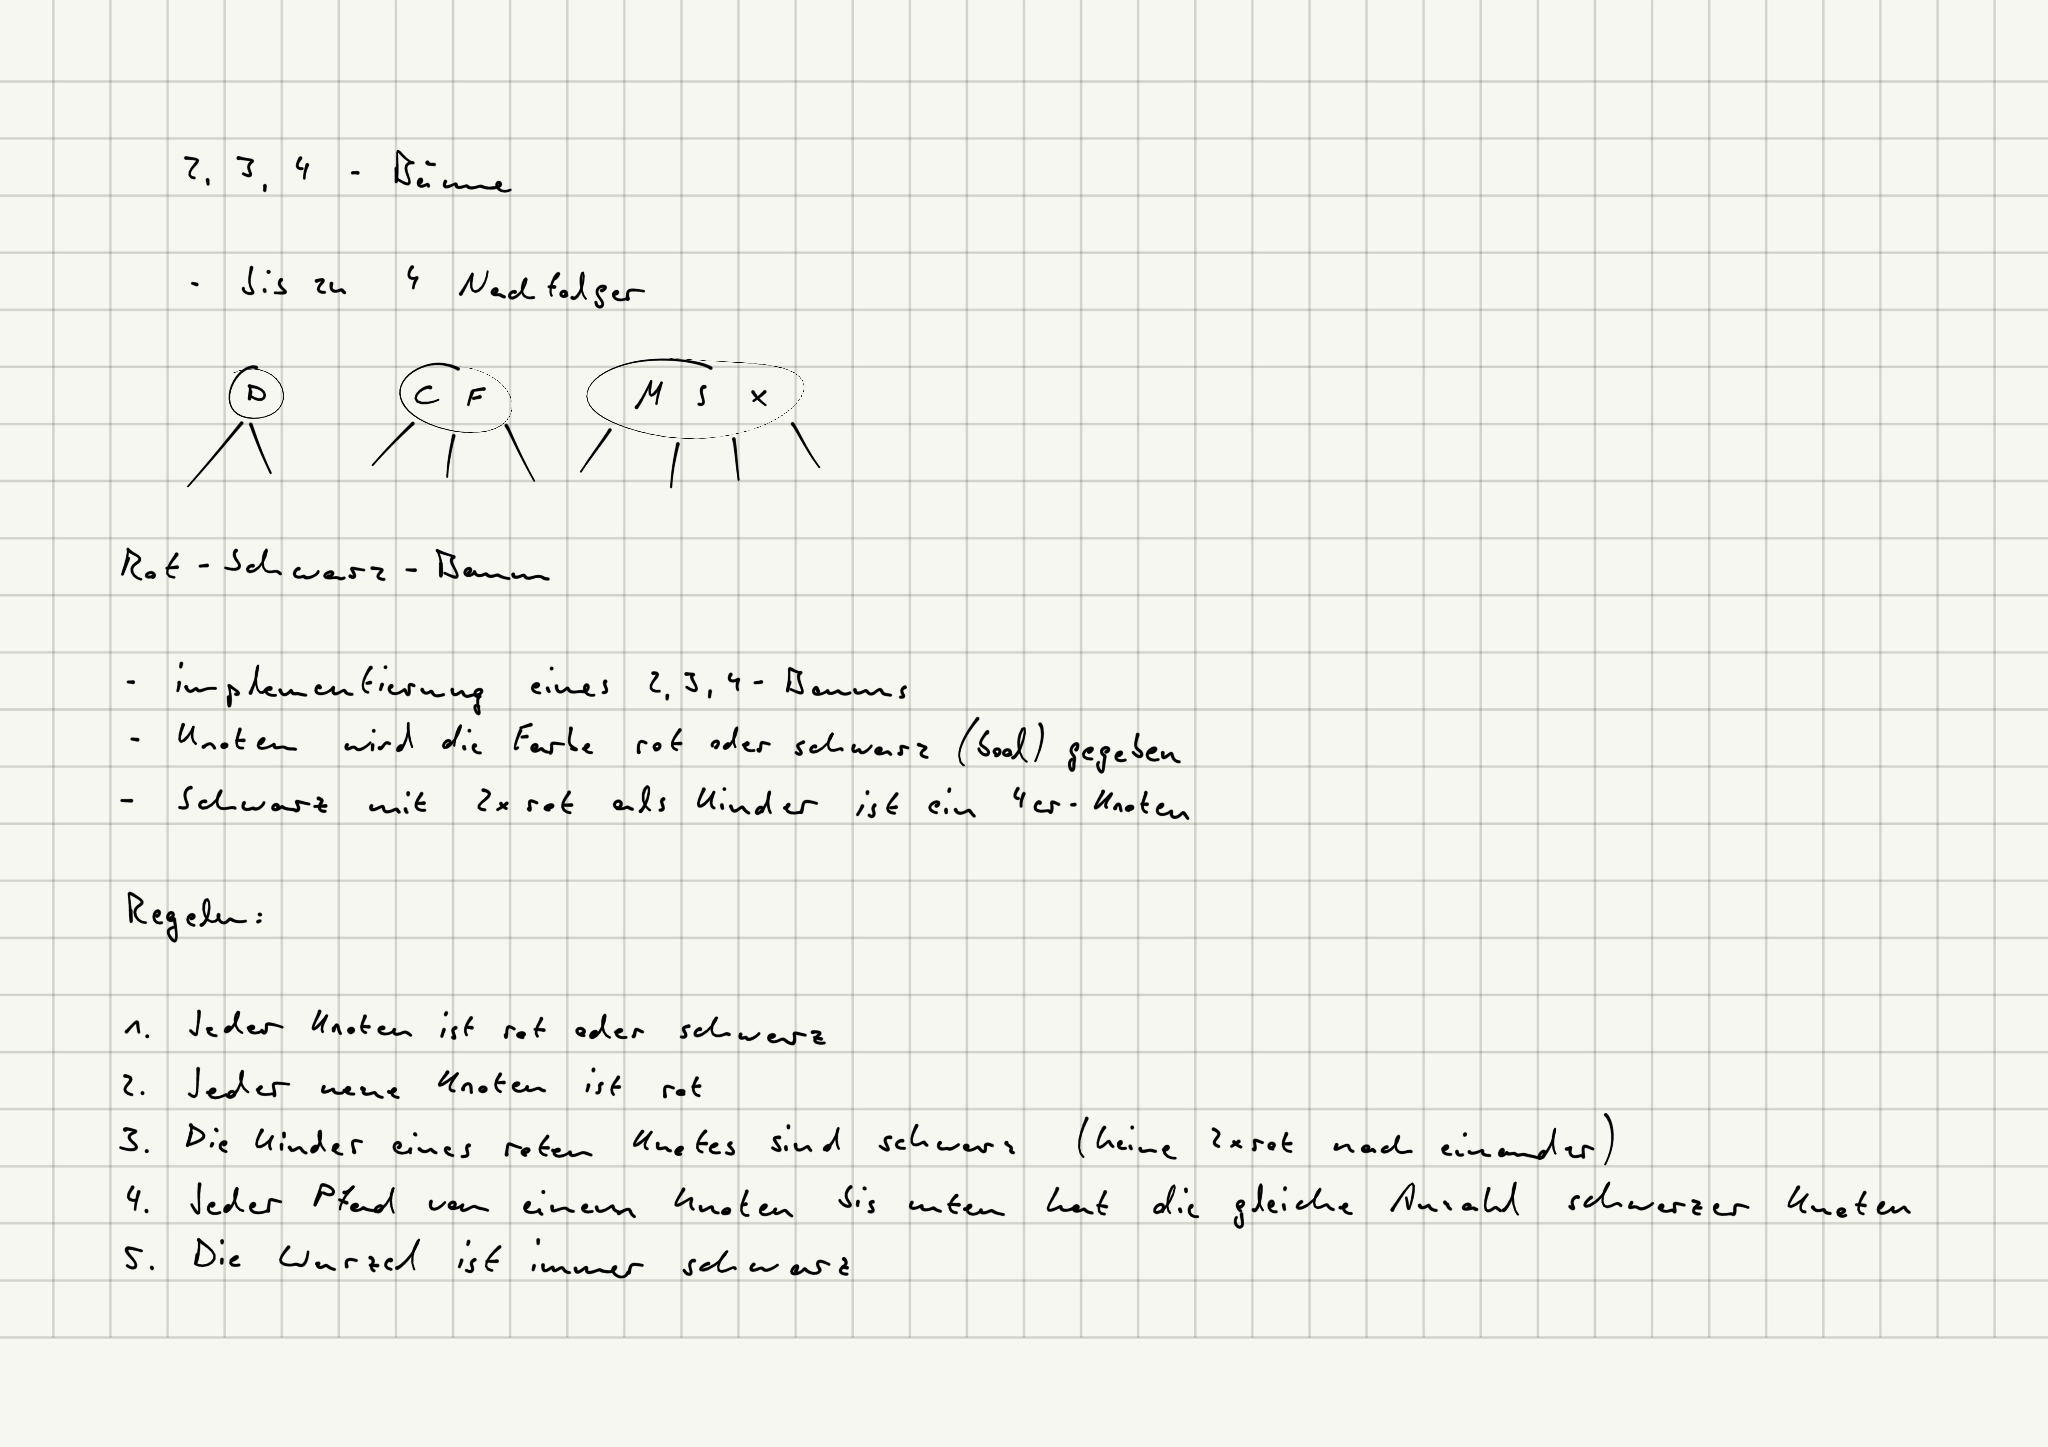 2, 3, 4 - Bäume
- bis zu 4 Nachfolger
D C F M S X
Rot-Schwarz-Baum
- implementierung eines 2,3,4-Baums
- Knoten wird die Farbe rot oder schwarz (bool) gegeben
- Schwarz mit 2x rot als Kinder ist ein 4er-Knoten
Regeln:
1. Jeder Knoten ist rot oder schwarz
2. Jeder neue Knoten ist rot
3. Die Kinder eines roten Knotes sind schwarz (keine 2x rot nach einander)
4. Jeder Pfad von einem Knoten bis unten hat die gleiche Anzahl schwarzer Knoten
5. Die Wurzel ist immer schwarz